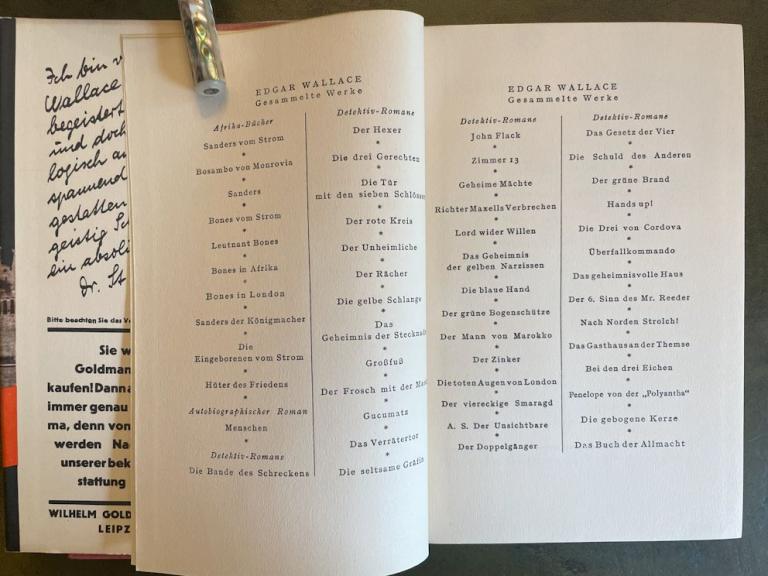 Ich bin
Wallace
begeistert
und doch
logisch
spannend
gestatten
geistig
ein
Dr. St
Bitte beachten Sie das
Sie
Goldman
kaufen! Dann
immer genau
ma, denn von
werden Na
unserer bek
stattung
WILHELM GOLD
LEIPZ
EDGAR WALLACE
Gesammelte Werke
Afrika-Bücher
Sanders vom Strom
*
Bosambo von Monrovia
*
Sanders
*
Bones vom Strom
*
Leutnant Bones
*
Bones in Afrika
*
Bones in London
*
Sanders der Königmacher
*
Die
Eingeborenen vom Strom
*
Hüter des Friedens
*
Autobiographischer Roman
Menschen
*
Detektiv-Romane
Die Bande des Schreckens
Detektiv-Romane
Der Hexer
*
Die drei Gerechten
*
Die Tür
mit den sieben Schlössern
*
Der rote Kreis
*
Der Unheimliche
*
Der Rächer
*
Die gelbe Schlange
*
Das
Geheimnis der Stecknadel
*
Großfuß
*
Der Frosch mit der Maske
*
Gucumatz
*
Das Verrätertor
*
Die seltsame Gräfin
EDGAR WALLACE
Gesammelte Werke
Detektiv-Romane
John Flack
*
Zimmer 13
*
Geheime Mächte
*
Richter Maxells Verbrechen
*
Lord wider Willen
*
Das Geheimnis
der gelben Narzissen
*
Die blaue Hand
*
Der grüne Bogenschütze
*
Der Mann von Marokko
*
Der Zinker
*
Die toten Augen von London
*
Der viereckige Smaragd
*
A. S. Der Unsichtbare
*
Der Doppelgänger
Detektiv-Romane
Das Gesetz der Vier
*
Die Schuld des Anderen
*
Der grüne Brand
*
Hands up!
*
Die Drei von Cordova
*
Überfallkommando
*
Das geheimnisvolle Haus
*
Der 6. Sinn des Mr. Reeder
*
Nach Norden Strolch!
*
Das Gasthaus an der Themse
*
Bei den drei Eichen
*
Penelope von der „Polyantha“
*
Die gebogene Kerze
*
Das Buch der Allmacht